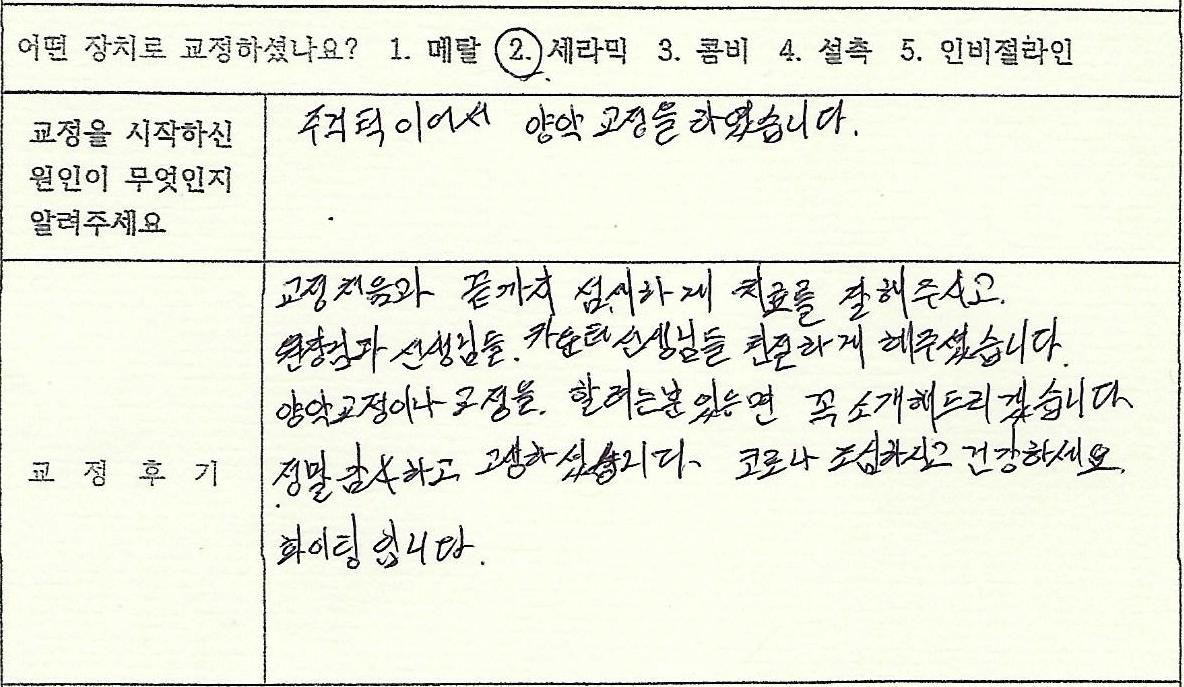 어떤 장치로 교정하셨나요? 1. 메탈 2. 세라믹 3. 콤비 4. 설측 5. 인비절라인
교정을 시작하신
원인이 무엇인지
알려주세요
주걱턱이어서 양악 교정을 하였습니다.
교 정 후 기
교정처음과 끝까지 섬세하게 치료를 잘해주시고.
원장님과 선생님들. 카운터선생님들 친절하게 해주셨습니다.
양악교정이나 교정을. 할려는분있는면 꼭 소개해드리겠습니다
정말 감사하고 고생하셨습니다. 코로나 조심하시고 건강하세요.
화이팅 입니다.